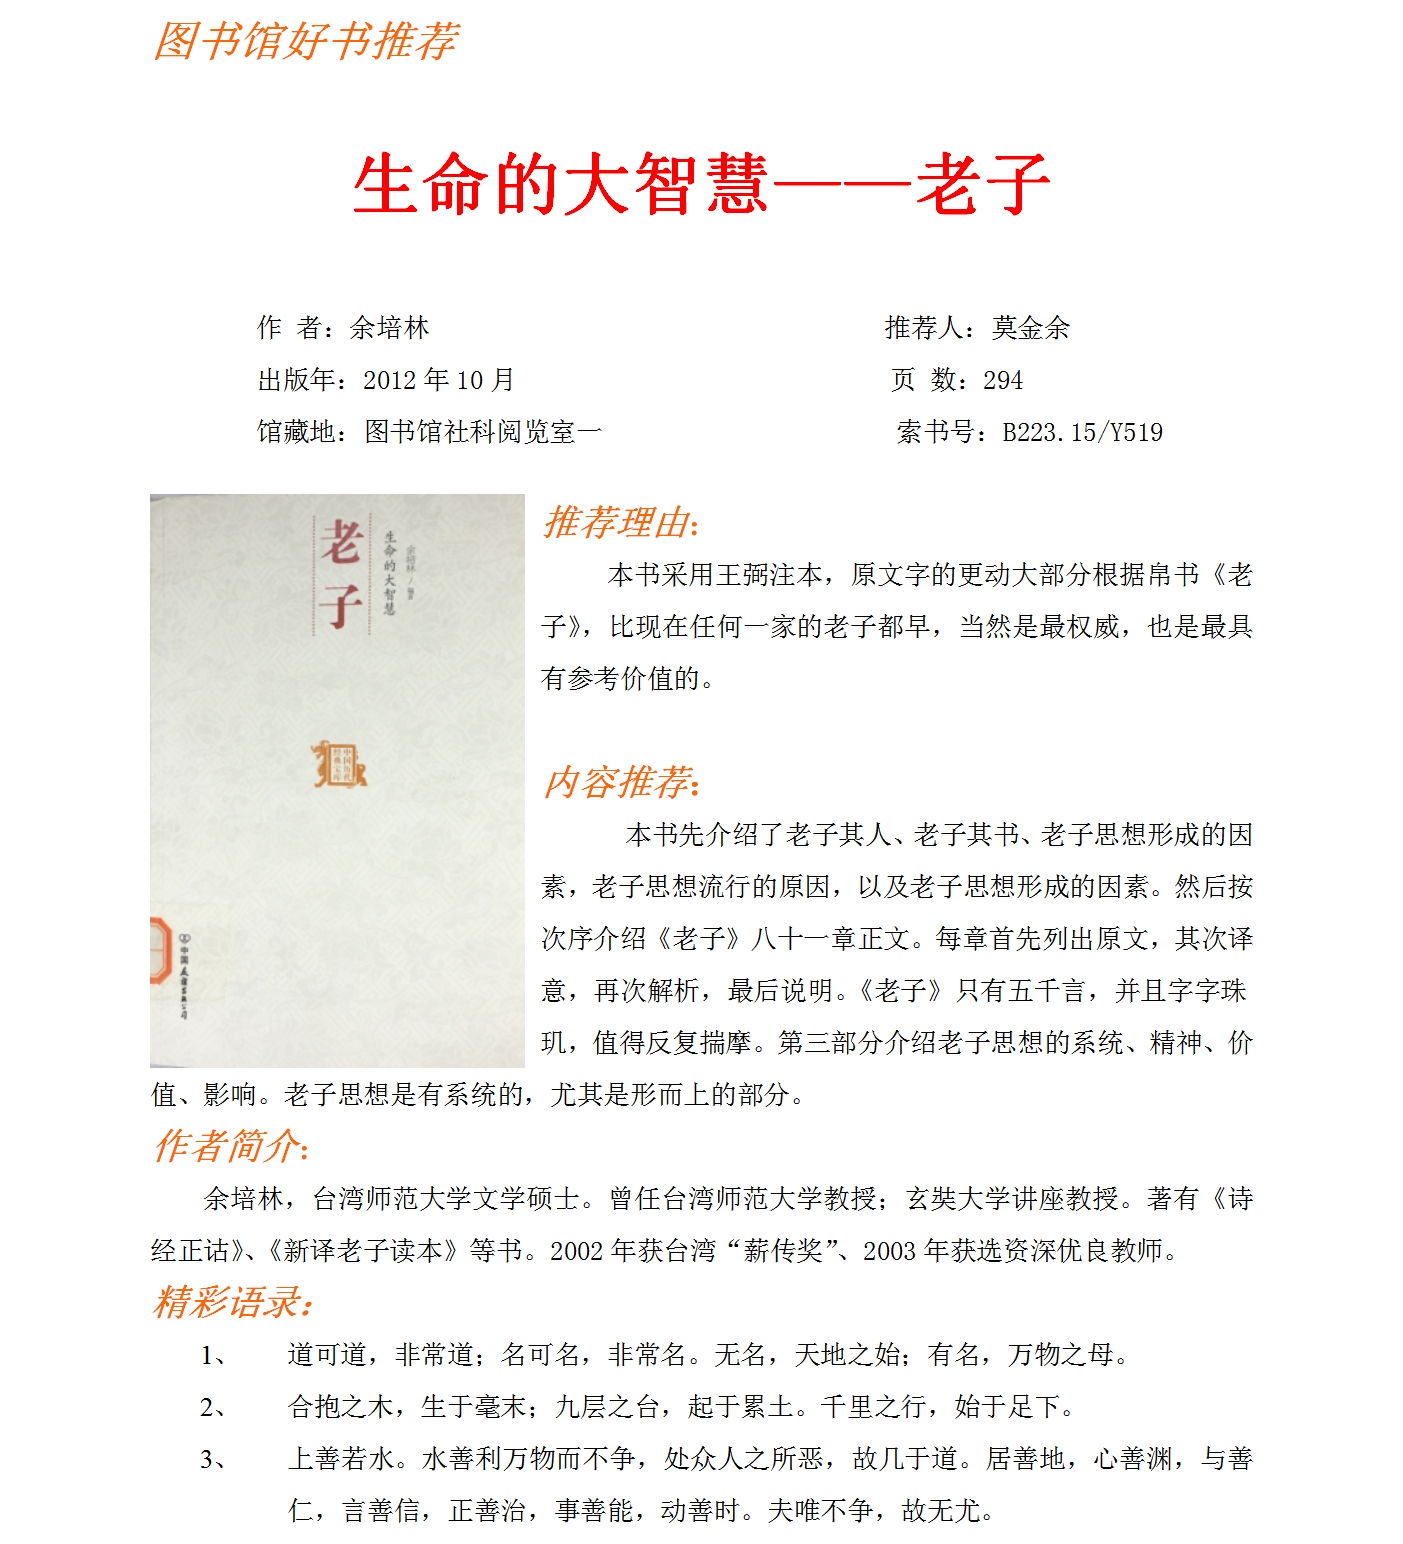 图书馆好书推荐
生命的大智慧——老子
作 者：余培林 推荐人：莫金余
出版年：2012年10月 页 数：294
馆藏地：图书馆社科阅览室一 索书号：B223.15/Y519
老子
生命的大智慧
余培林/编著
中国历代
经典宝库
中国友谊出版公司
推荐理由：
本书采用王弼注本，原文字的更动大部分根据帛书《老
子》，比现在任何一家的老子都早，当然是最权威，也是最具
有参考价值的。
内容推荐：
本书先介绍了老子其人、老子其书、老子思想形成的因
素，老子思想流行的原因，以及老子思想形成的因素。然后按
次序介绍《老子》八十一章正文。每章首先列出原文，其次译
意，再次解析，最后说明。《老子》只有五千言，并且字字珠
玑，值得反复揣摩。第三部分介绍老子思想的系统、精神、价
值、影响。老子思想是有系统的，尤其是形而上的部分。
作者简介：
余培林，台湾师范大学文学硕士。曾任台湾师范大学教授；玄奘大学讲座教授。著有《诗
经正诂》、《新译老子读本》等书。2002年获台湾“薪传奖”、2003年获选资深优良教师。
精彩语录：
1、 道可道，非常道；名可名，非常名。无名，天地之始；有名，万物之母。
2、 合抱之木，生于毫末；九层之台，起于累土。千里之行，始于足下。
3、 上善若水。水善利万物而不争，处众人之所恶，故几于道。居善地，心善渊，与善
仁，言善信，正善治，事善能，动善时。夫唯不争，故无尤。